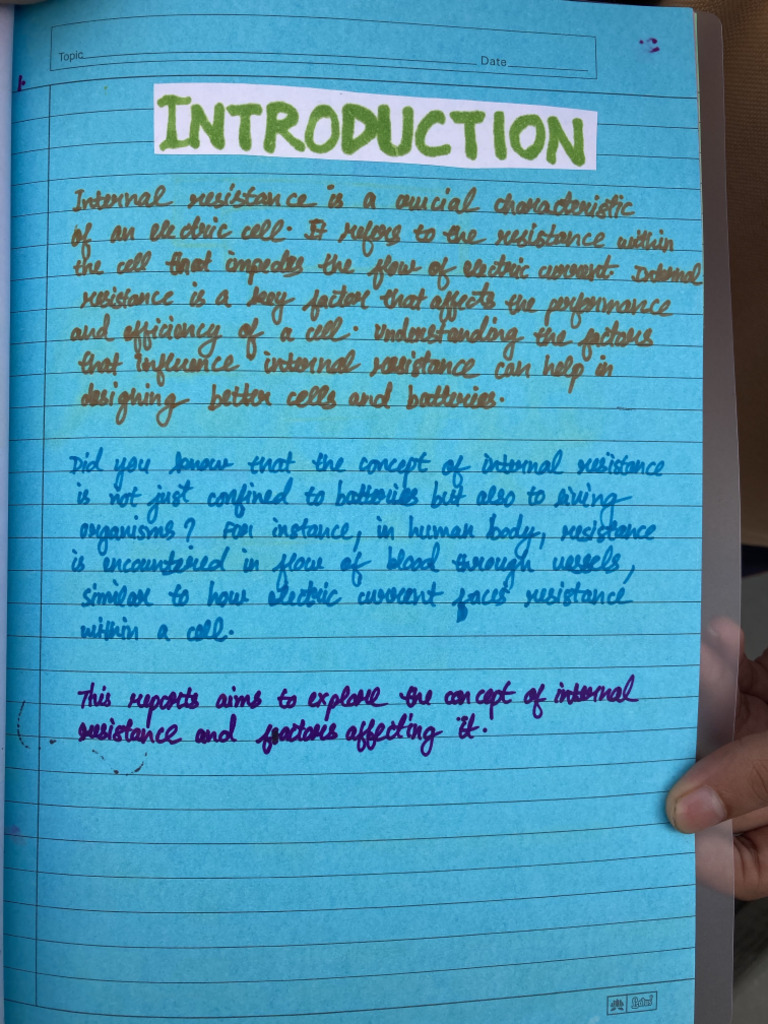 Topic
Date
INTRODUCTION
Internal resistance is a crucial characteristic
of an electric cell. It refers to the resistance within
the cell that impedes the flow of electric current. Internal
resistance is a key factor that affects the performance
and efficiency of a cell. Understanding the factors
that influence internal resistance can help in
designing better cells and batteries.
Did you know that the concept of internal resistance
is not just confined to batteries but also to living
organisms? For instance, in human body, resistance
is encountered in flow of blood through vessels,
similar to how electric current faces resistance
within a cell.
This reports aims to explore the concept of internal
resistance and factors affecting it.